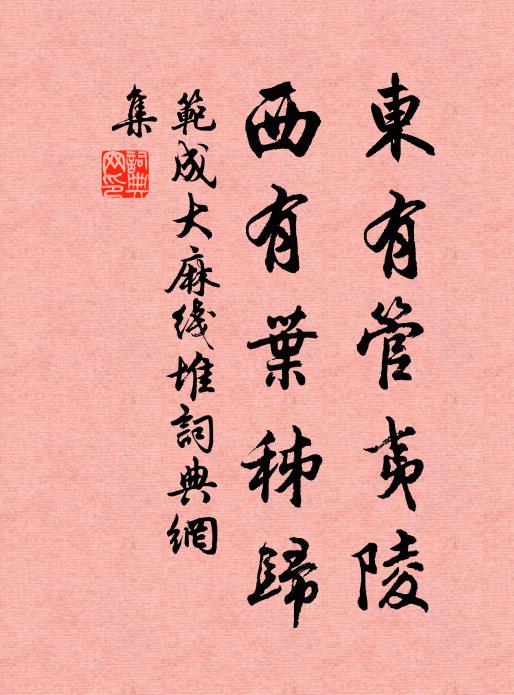 東有管夷陵
西有葉秭歸
範成大麻线堆詞典網
集
詞典
网印